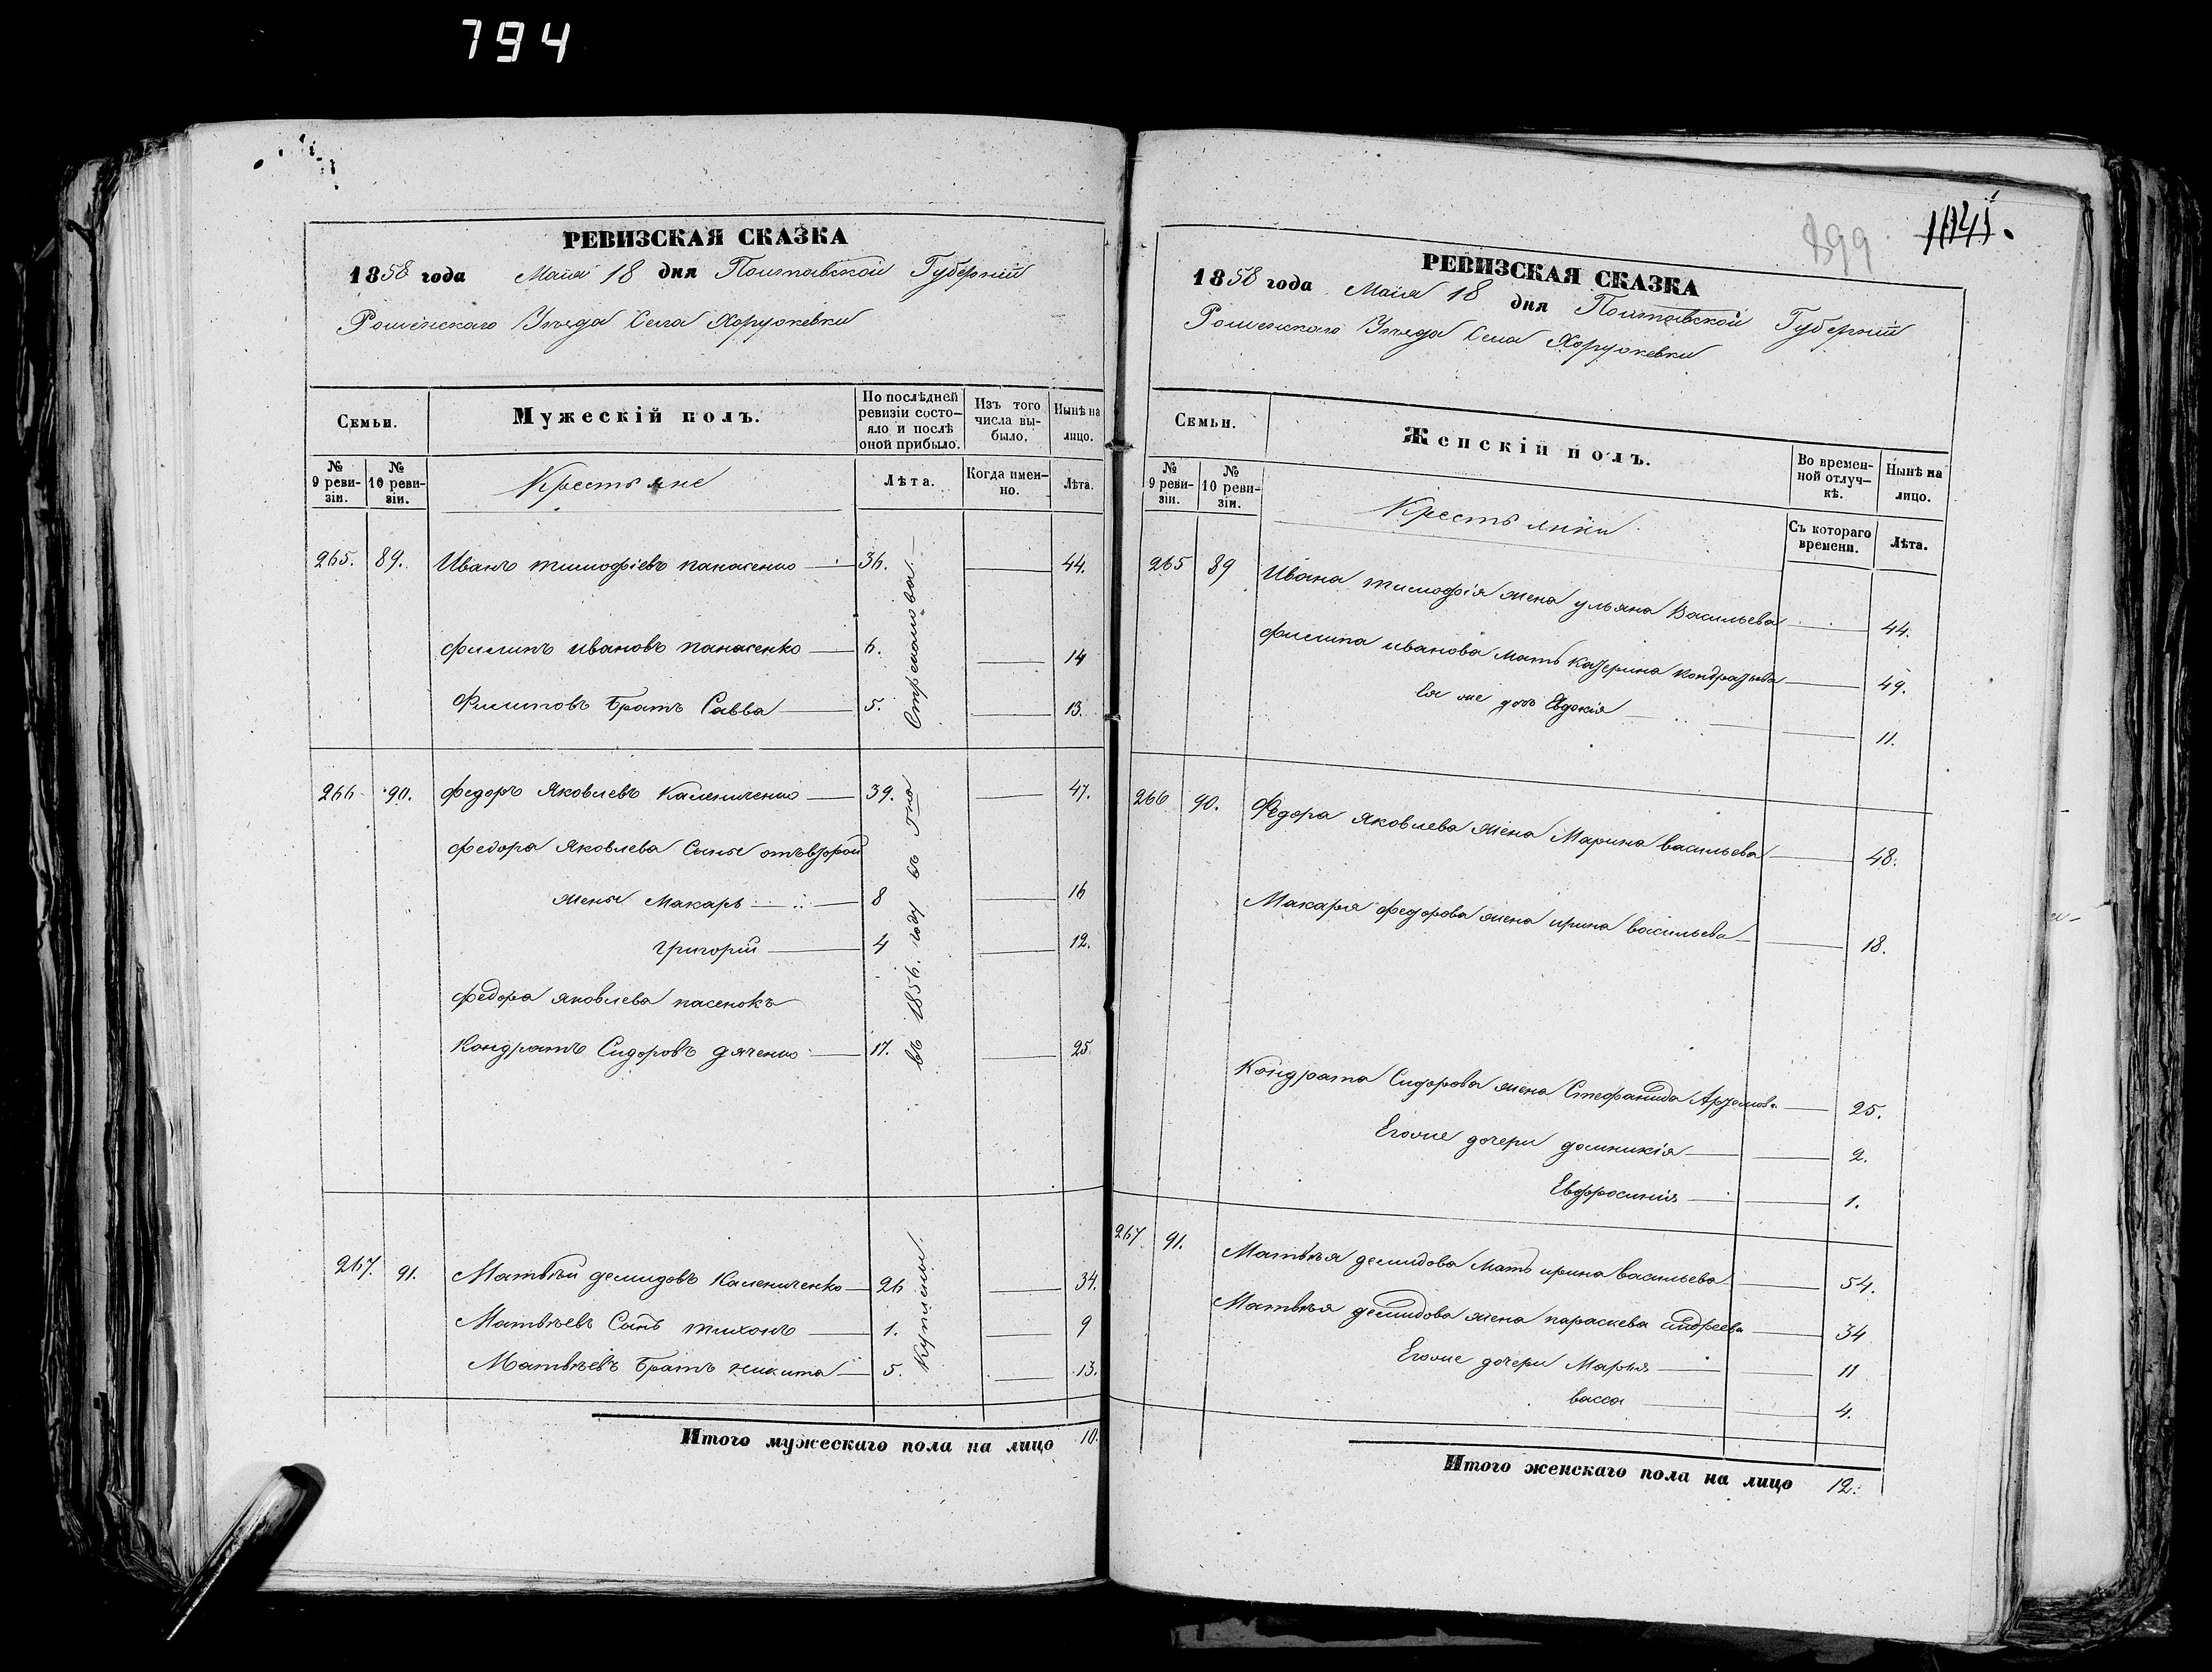 794
РЕВИЗСКАЯ СКАЗКА
1858 года Маія 18 дня Полтавской Губерніи
Роменскаго Уѣзда Села Хоружевки
Семьи.
Мужескій полъ.
По послѣдней ревизіи состояло и послѣ оной прибыло.
Изъ того числа выбыло.
Нынѣ на лицо.
№ 9 ревизіи.
№ 10 ревизіи.
Крестьяне
Лѣта.
Когда именно.
Лѣта.
265. 89. Иванъ тимофіевъ панасенко 36. 44.
филипъ ивановъ панасенко 6. 14
Филиповъ братъ Савва 5. 13.
266 90. федоръ Яковлевъ Калениченко 39. 47.
федора Яковлева Сыны отъ второй
жены Макаръ 8 16
григорій 4 12.
федора яковлева пасенокъ
Кондратъ Сидоровъ дяченко 17. 25
267. 91. Матвѣй демидовъ Калениченко 26 34.
Матвѣевъ Сынъ тихонъ 1. 9
Матвѣевъ братъ никита 5. 13.
Куплены въ 1856. году въ Гна Стремоухова
Итого мужескаго пола на лицо 10.
899 1041.
РЕВИЗСКАЯ СКАЗКА
1858 года Маія 18 дня Полтавской Губерніи
Роменскаго Уѣзда Села Хоружевки
Семьи.
Женскій полъ.
Во временной отлучкѣ.
Нынѣ на лицо.
№ 9 ревизіи.
№ 10 ревизіи.
Крестьянки
Съ котораго времени.
Лѣта.
265 89 Ивана тимофія жена ульяна Васильева 44.
филипа иванова мать катерина кондратьева 49.
Ея же дочь Евдокія 11.
266 90. Федора яковлева жена Марина васильева 48.
Макарья федорова жена ирина васильева 18.
Кондрата Сидорова жена Стефанида Артемова 25.
Егоже дочери домникія 2.
Евфросинія 1.
267 91. Матвѣя демидова мать ирина васильева 54.
Матвѣя демидова жена параскева андреева 34
Егоже дочери Марья 11
васса 4.
Итого женскаго пола на лицо 12.